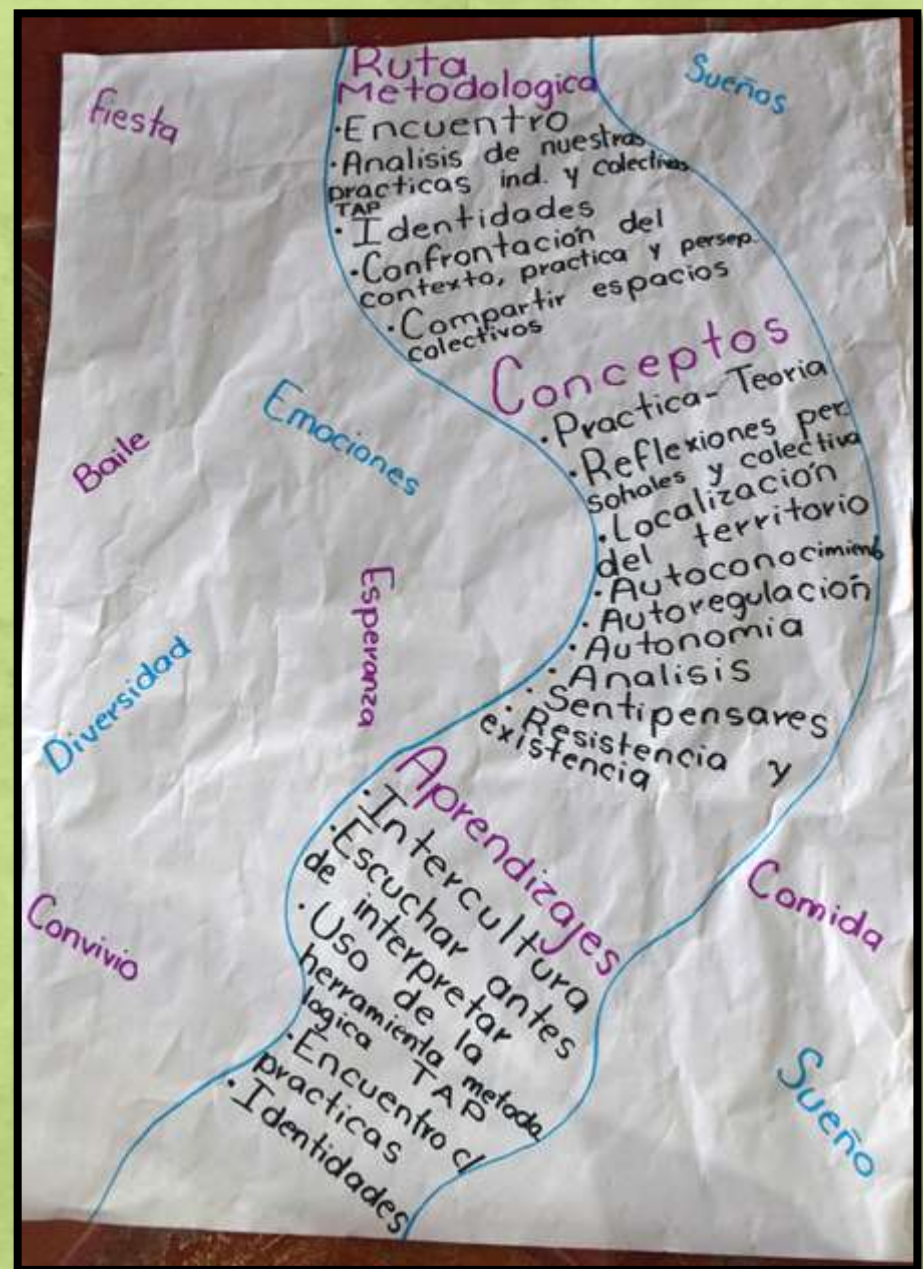 Ruta
Metodologica
·Encuentro
·Analisis de nuestras
practicas ind. y colectivas
TAP
·Identidades
·Confrontación del
contexto, practica y persep.
·Compartir espacios
colectivos
Conceptos
·Practica-Teoria
·Reflexiones per
sohales y colectiva
·Localización
del territorio
·Autoconocimiento
·Autoregulación
·Autonomia
·Analisis
·Sentipensares
·Resistencia y
existencia
Aprendizajes
·Intercultura
·Escuchar antes
de interpretar
·Uso de la
herramienta metodo
logica TAP
·Encuentro c/
practicas
·Identidades
fiesta
Sueños
Emociones
Baile
Esperanza
Diversidad
Convivio
Comida
Sueño